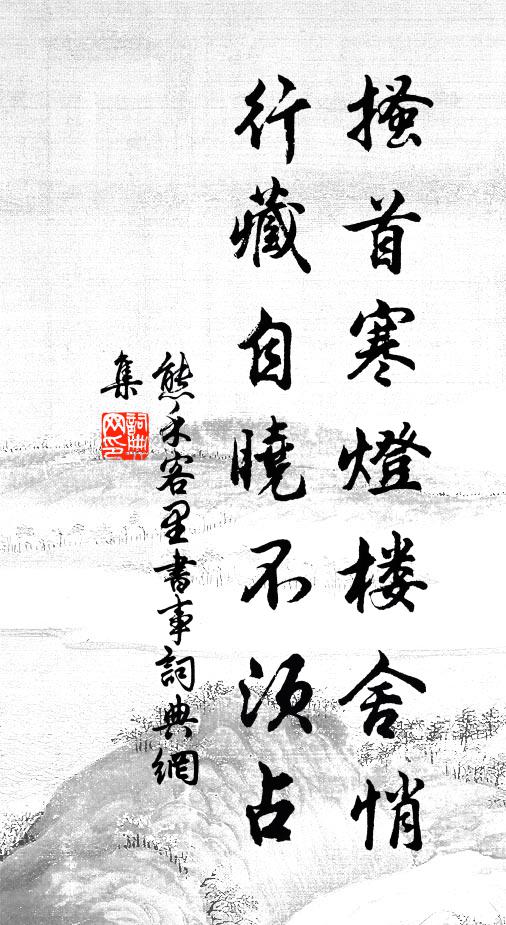 搔首寒燈楼舍悄
行藏自曉不須占
熊禾客里書事詞典網
集
詞典网印